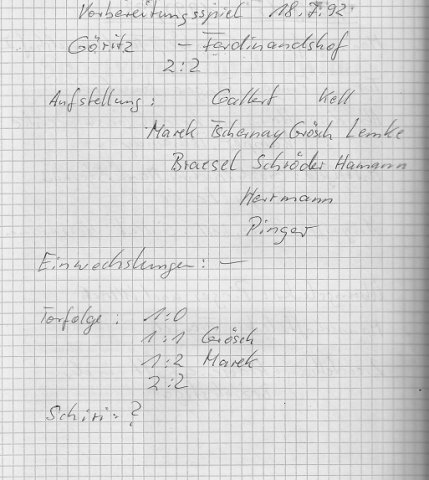 Vorbereitungsspiel 18.7.92
Göritz - Ferdinandshof
2:2
Aufstellung: Gallert Kell
Marek Tschernay Grösch Lemke
Braesel Schröder Hamann
Herrmann
Pinger
Einwechslungen: —
Torfolge: 1:0
1:1 Grösch
1:2 Marek
2:2
Schiri: ?